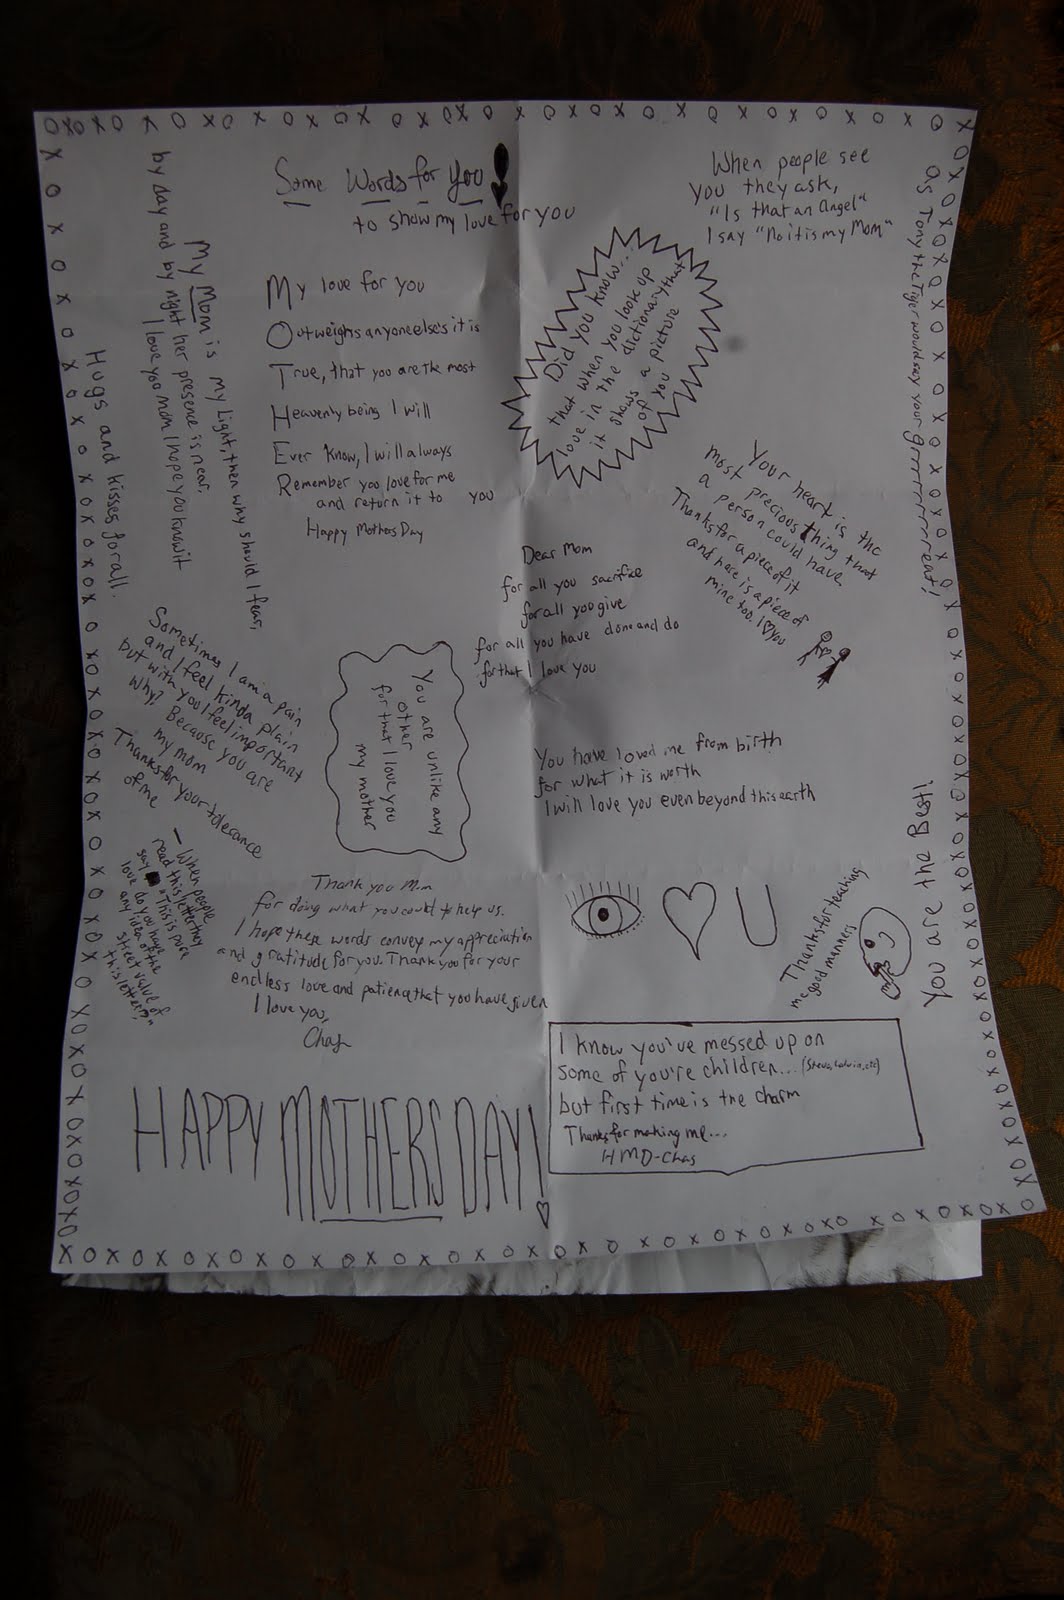 Some Words for You!
to show my love for you
When people see
you they ask,
"Is that an Angel"
I say "No it is my Mom"
as Tony the Tiger would say your Grrrrrrrreat!
by day and by night her presence is near.
My Mom is my light, then why should I fear,
I love you mom I hope you know it
Hugs and kisses for all.
My love for you
Outweighs anyone else's it is
True, that you are the most
Heavenly being I will
Ever Know, I will always
Remember you love for me
and return it to you
Happy Mothers Day
Did you know...
that when you look up
love in the dictionary that
it shows a picture
of you
Your heart is the
most precious thing that
a person could have
Thanks for a piece of it
and here is a piece of
mine too. I ♡ you
Dear Mom
for all you sacrifice
for all you give
for all you have done and do
for that I love you
Sometimes I am a pain
and I feel kinda plain
but with you I feel important
Why? Because you are
my mom
Thanks for your tolerance
of me
You are unlike any
other
for that I love you
my mother
You have loved me from birth
for what it is worth
I will love you even beyond this earth
- When people
read this letter they
say "This is pure
love do you have
any idea of the
street value of
this letter"
Thank you Mom
for doing what you could to help us.
I hope these words convey my appreciation
and gratitude for you. Thank you for your
endless love and patience that you have given
I love you,
Chas
♡ U
Thanks for teaching
me good manners
You are the Best!
I know you've messed up on
some of you're children... (Steve, Calvin, etc)
but first time is the charm
Thanks for making me...
HMD-Chas
HAPPY MOTHERS DAY!